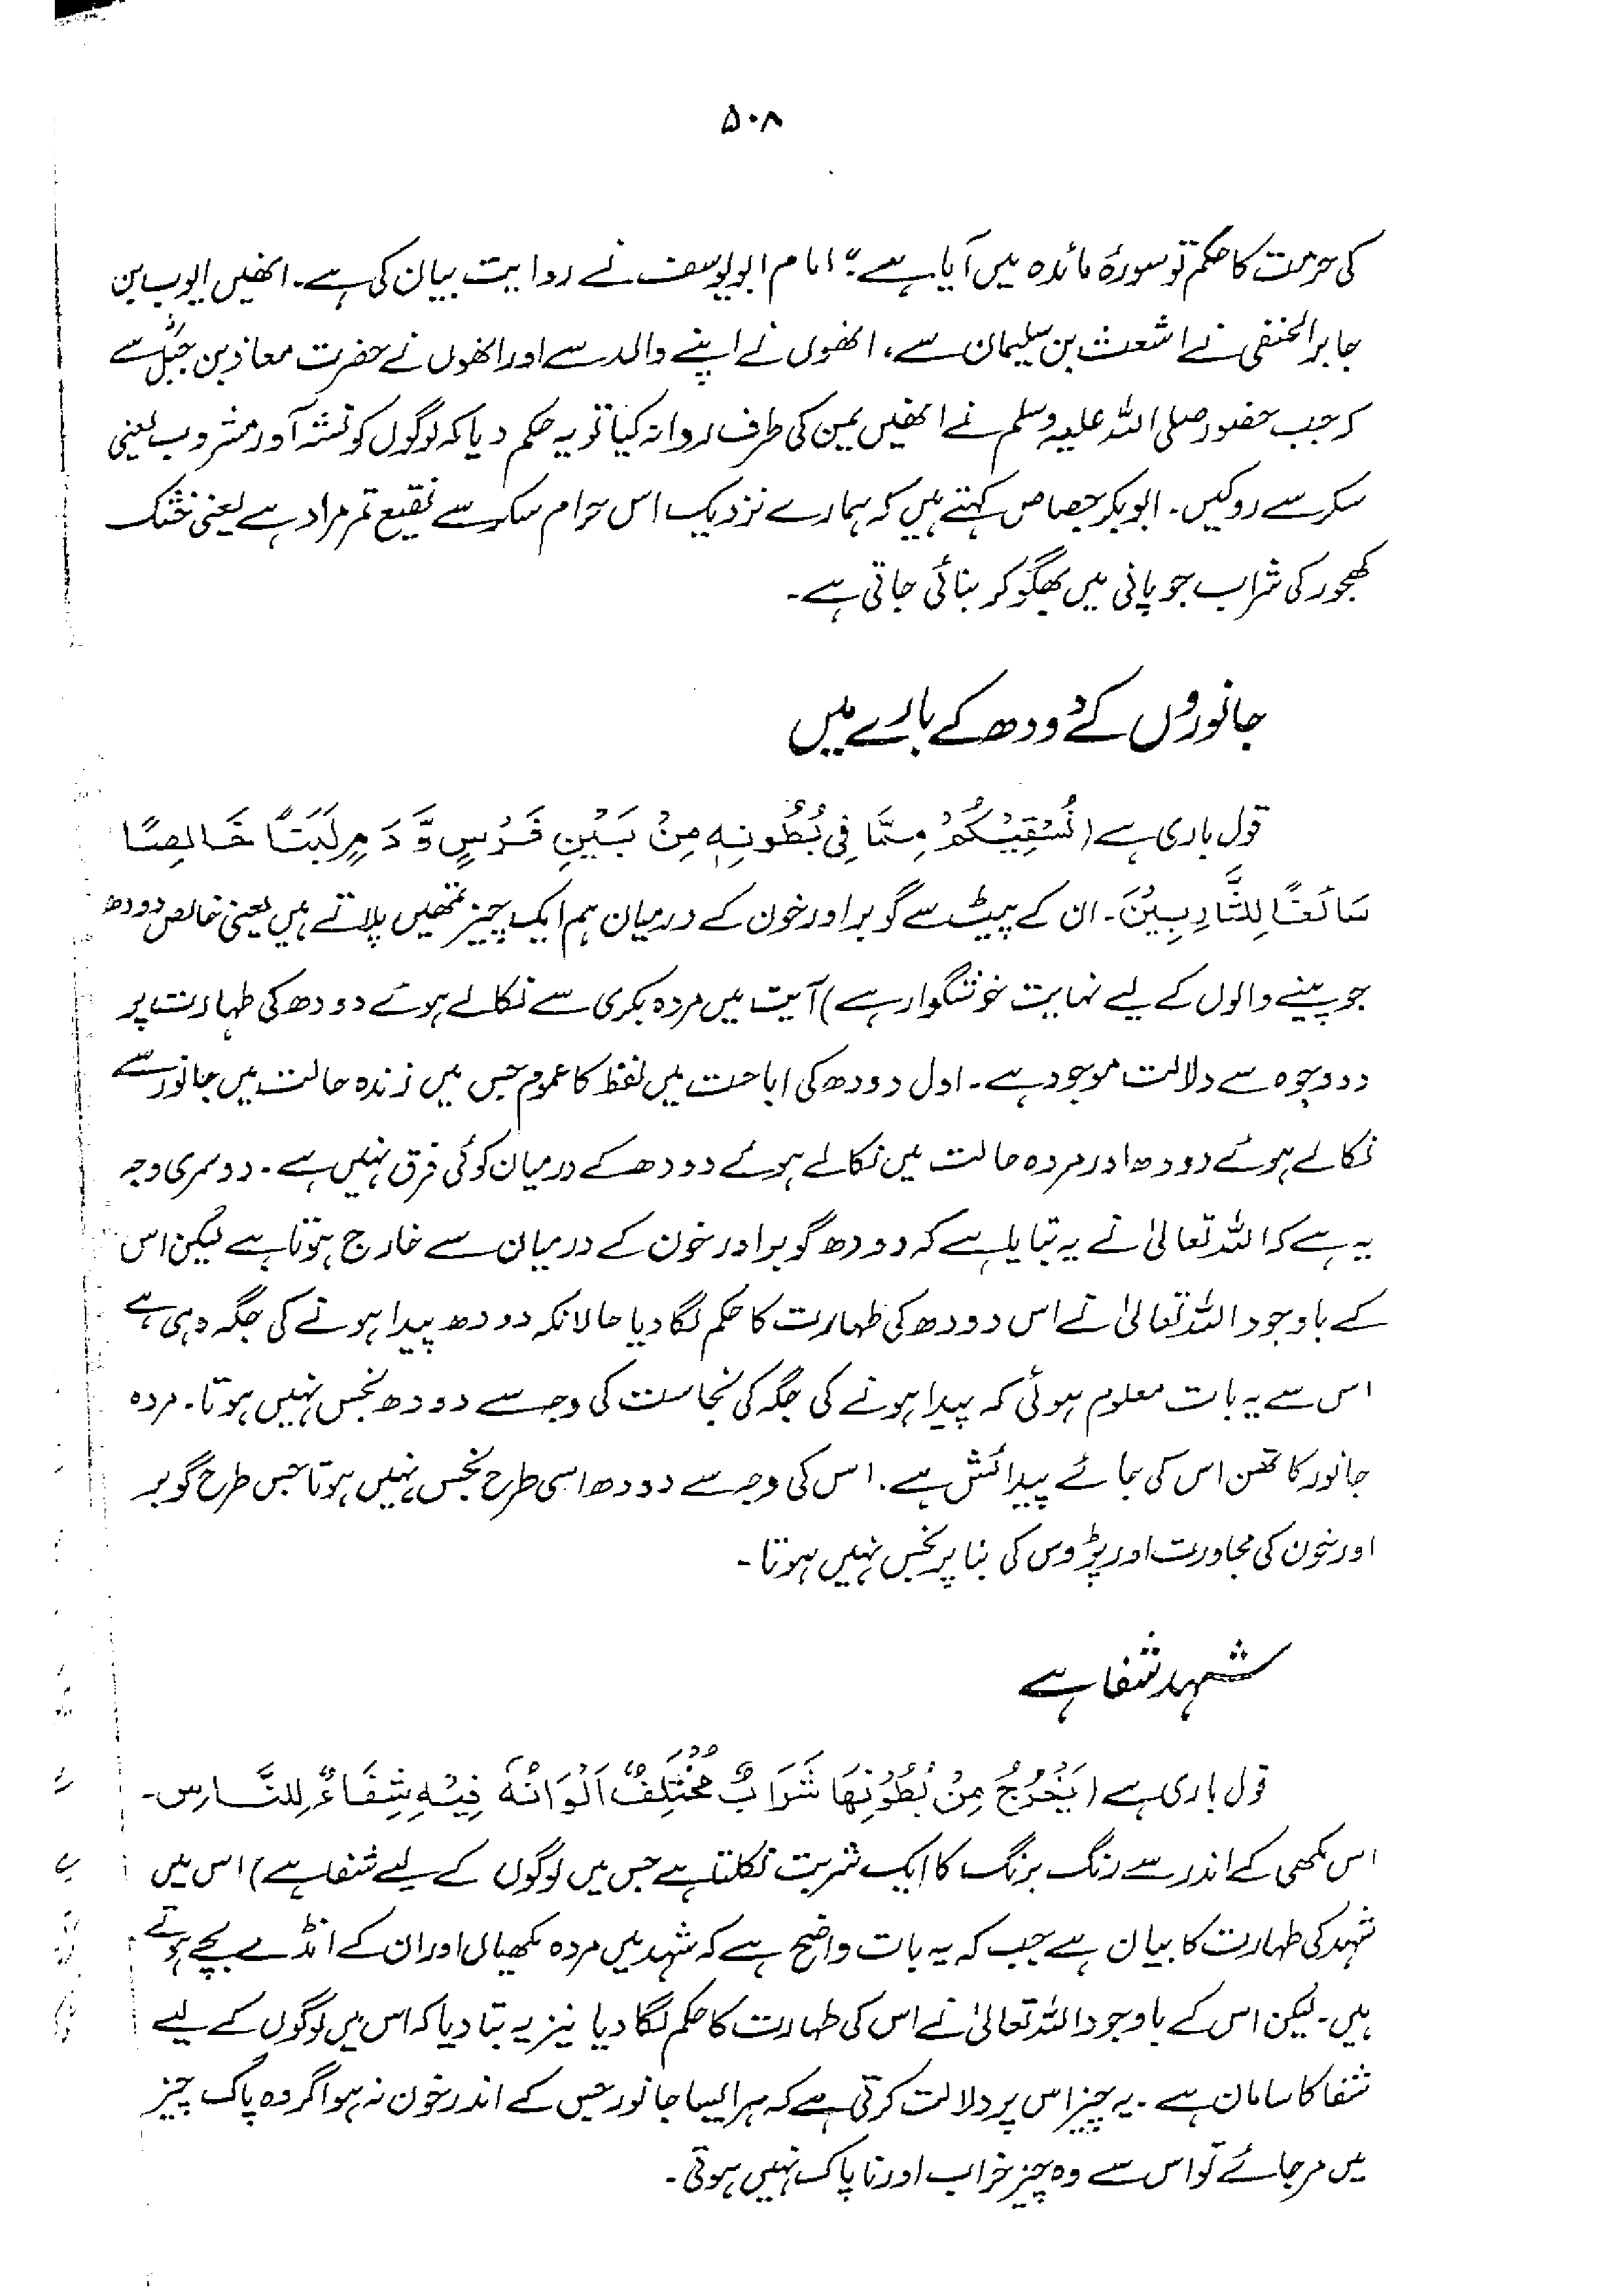 ۵۰۸
کی حرمت کا حکم تو سورۂ مائدہ میں آیا ہے"؛ امام ابو یوسف نے روایت بیان کی ہے۔ انھیں ایوب بن
جابر الحنفی نے اشعث بن سلیمان سے، انھوں نے اپنے والد سے اور انھوں نے حضرت معاذ بن جبلؓ سے
کہ جب حضور صلی اللہ علیہ وسلم نے انھیں یمن کی طرف روانہ کیا تو یہ حکم دیا کہ لوگوں کو نشہ آور مشروب یعنی
سکر سے روکیں۔ ابوبکر جصاص کہتے ہیں کہ ہمارے نزدیک اس حرام سکر سے نقیع تمر مراد ہے یعنی خشک
کھجور کی شراب جو پانی میں بھگو کر بنائی جاتی ہے۔
جانوروں کے دودھ کے بارے میں
قول باری ہے (نُسْقِيْكُمْ مِمَّا فِي بُطُونِهٖ مِنْ بَيْنِ فَرْثٍ وَّدَمٍ لَبَنًا خَالِصًا
سَائِغًا لِلشَّارِبِيْنَ۔ ان کے پیٹ سے گوبر اور خون کے درمیان ہم ایک چیز تمھیں پلاتے ہیں یعنی خالص دودھ
جو پینے والوں کے لیے نہایت خوشگوار ہے) آیت میں مردہ بکری سے نکالے ہوئے دودھ کی طہارت پر
دو وجوہ سے دلالت موجود ہے۔ اول دودھ کی اباحت میں لفظ کا عموم جس میں زندہ حالت میں جانور سے
نکالے ہوئے دودھ اور مردہ حالت میں نکالے ہوئے دودھ کے درمیان کوئی فرق نہیں ہے۔ دوسری وجہ
یہ ہے کہ اللہ تعالیٰ نے یہ بتایا ہے کہ دودھ گوبر اور خون کے درمیان سے خارج ہوتا ہے لیکن اس
کے باوجود اللہ تعالیٰ نے اس دودھ کی طہارت کا حکم لگا دیا حالانکہ دودھ پیدا ہونے کی جگہ وہی ہے
اس سے یہ بات معلوم ہوئی کہ پیدا ہونے کی جگہ کی نجاست کی وجہ سے دودھ نجس نہیں ہوتا۔ مردہ
جانور کا تھن اس کی جائے پیدائش ہے۔ اس کی وجہ سے دودھ اسی طرح نجس نہیں ہوتا جس طرح گوبر
اور خون کی مجاورت اور پڑوس کی بنا پر نجس نہیں ہوتا۔
شہد شفا ہے
قول باری ہے (يَخْرُجُ مِنْ بُطُوْنِهَا شَرَابٌ مُخْتَلِفٌ اَلْوَانُهٗ فِيْهِ شِفَاءٌ لِلنَّاسِ۔
اس مکھی کے اندر سے رنگ برنگ کا ایک شربت نکلتا ہے جس میں لوگوں کے لیے شفا ہے) اس میں
شہد کی طہارت کا بیان ہے جب کہ یہ بات واضح ہے کہ شہد میں مردہ مکھیاں اور ان کے انڈے بچے ہوتے
ہیں۔ لیکن اس کے باوجود اللہ تعالیٰ نے اس کی طہارت کا حکم لگا دیا نیز یہ بتا دیا کہ اس میں لوگوں کے لیے
شفا کا سامان ہے۔ یہ چیز اس پر دلالت کرتی ہے کہ ہر ایسا جانور جس کے اندر خون نہ ہو اگر وہ پاک چیز
میں مر جائے تو اس سے وہ چیز خراب اور ناپاک نہیں ہوتی۔